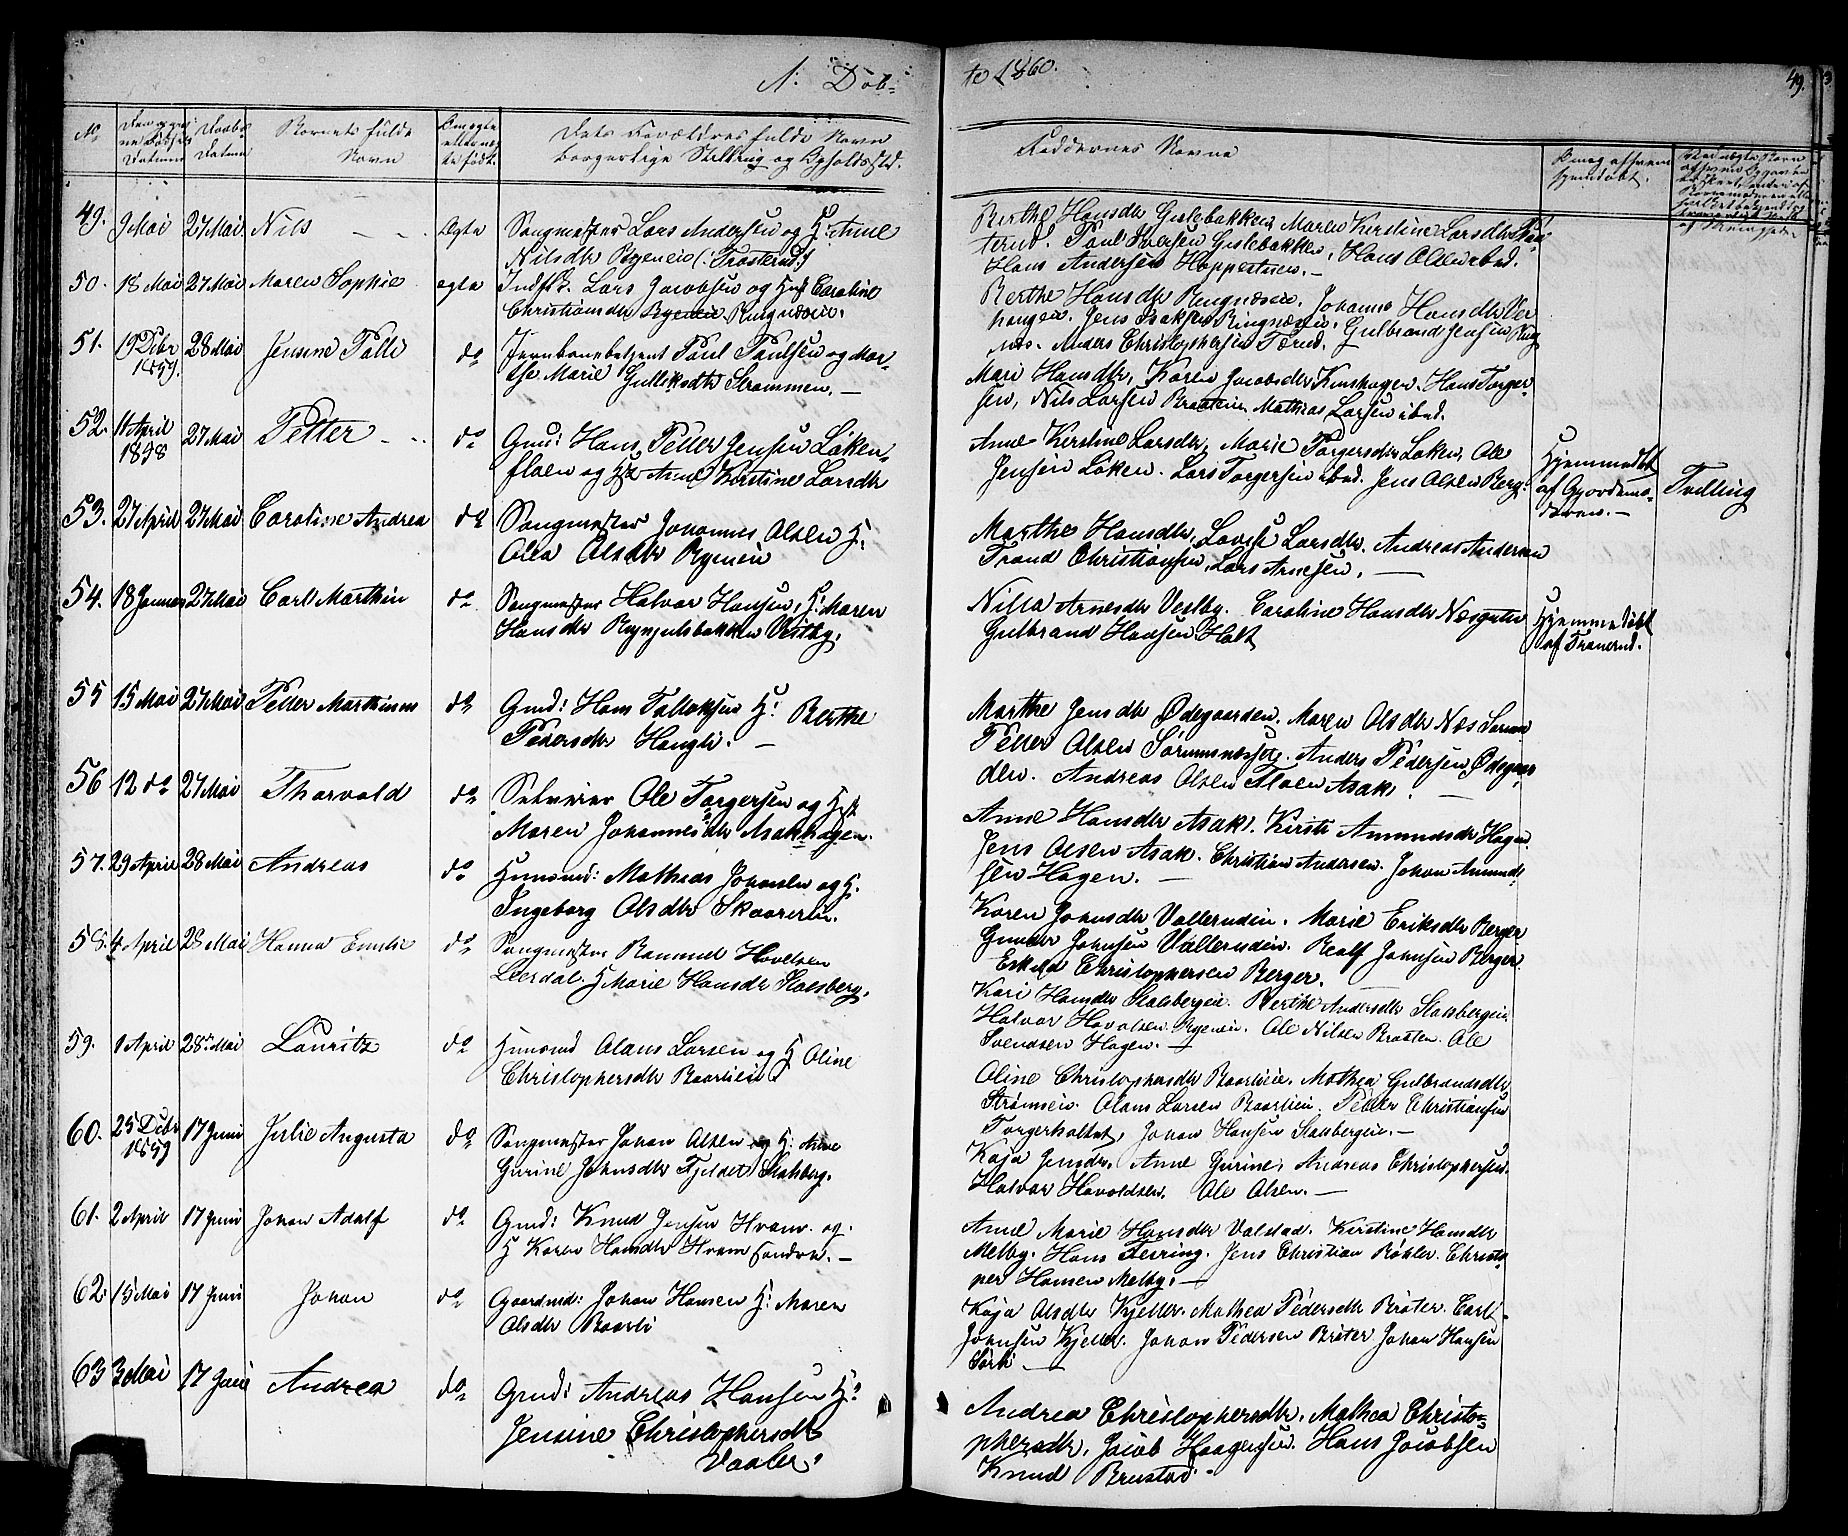 A: Döb-
te 1860.
49.
No
Börnets fulde
Navn
Dets Forældres fulde Navn
borgerlige Stilling og Opholdssted.
Faddernes Navne
49. 9 Mai 27 Mai Nils - - Ægte Sangmester Lars Andersen og H: Anne
Nilsdtr Ryeneie (: Trosterud:)
Berthe Hansdtr Gislebakken, Maren Kirstine Larsdtr
terud. Paul Iversen Gislebakken, Hans Olsen ibid.
Hans Andersen Hoppestuen. -
50. 18 Mai 27 Mai Maren Sophie ægte Indst. Lars Jacobsen og Hust Caroline
Christiansdtr Ryeneie Ringnæseie.
Berthe Hansdtr Ringnæseie. Johanne Hansdtr Ver
haugen. Jens Isaksen Ringnæseie. Gulbrand Jensen Ring
næs. Anders Christophersen Tærud.
51. 19 Debr 1859. 28 Mai Jensine Palli do Jernbanebetjent Paul Paulsen og Mar-
the Marie Gulliksdtr Strømmen. -
Mari Hansdtr, Karen Jacobsdtr Kinshagen. Hans Torger-
sen, Nils Larsen Braateneie, Mathias Larsen ibid.
52. 11 April 1858 27 Mai Petter - - do Gmd: Hans Petter Jensen Løken-
floen og H Anne Kirstine Larsdtr
Anne Kirstine Larsdtr, Marie Torgersdtr Løken, Ole
Jensen Løken. Lars Torgersen ibid. Jens Olsen Berg.
Hjemmedöbt
af Gjordemo-
deren. -
Tvilling
53. 27 April 27 Mai Caroline Andrea do Sangmester Johannes Olsen H:
Olea Olsdtr Ryeneie
Marthe Hansdtr, Lovise Larsdtr. Andreas Andersen
Trond Christiansen, Lars Arnesen. -
54. 18 Januar 27 Mai Carl Marthin do Sangmester Halvor Hansen, H: Maren
Hansdtr Ryngulsbakken Vestby.
Nilla Arnesdtr Vestby. Caroline Hansdtr Næsgutu
Gulbrand Hansen Holt
Hjemmedöbt
af Tranerud.
55 15 Mai 27 Mai Petter Marthinus do Gmd: Hans Tollefsen H: Berthe
Pedersdtr Hauglie. -
Marthe Jensdtr Ødegaarden. Maren Olsdtr Næs Sørum
Petter Olsen Sørumsnæsset. Anders Pedersen Ødegaar
den. Andreas Olsen Floen Asak. -
56 12 do 27 Mai Thorvald do Selveier Ole Torgersen og Hst
Maren Johannesdtr Asakhagen.
Anne Hansdtr Asak. Kirsti Amundsdtr Hagen
Jens Olsen Asak. Christian Andersen. Johan Amund-
sen Hagen. -
57. 29 April 28 Mai Andreas do Huusmd: Mathias Johnsen og H.
Ingeborg Olsdtr Skaareneie.
Karen Johnsdtr Vallerudeie. Marie Eriksdtr Berger
Gunder Johnsen Vallerudeie. Roalf Johnsen Berger.
Eskild Christophersen Berger.
58. 4 April 28 Mai Hanna Emilie do Sangmester Rommel Havelsen
Leerdal. H Marie Hansdtr Stalsberg.
Kari Hansdtr Stalsbergeie. Berthe Andersdtr Stalsbergeie.
Halvor Havalsen Ryeneie. Ole Nilsen Braaten. Ole
Svendsen Hagen. -
59. 1 April 28 Mai Lauritz do Huusmd Olaus Larsen og H Oline
Christophersdtr Baarlieie.
Oline Christophersdtr Baarlieie. Mathea Gulbrandsdtr
Strømseie. Olaus Larsen Baarlieie. Petter Christiansen
Torgerholtet. Johan Hansen Stalsbergeie. -
60. 25 Debr 1859 17 Juni Julie Augusta do Sangmester Johan Olsen og H: Anne
Gurine Johnsdtr Fjeldet Stalsberg.
Kaja Jensdtr. Anne Gurine, Andreas Christophersen.
Halvor Havoldsen. Ole Olsen. -
61. 2 April 17 Juni Johan Adolf do Gmd: Knud Jensen Hvam og.
H Karen Hansdtr Hvam søndre. -
Anne Marie Hansdtr Valstad. Kirstine Hansdtr
Melby. Hans Feiring. Jens Christian Bøhler. Christo-
pher Hansen Melby. -
62. 15 Mai 17 Juni Johan do Gaardmd: Johan Hansen H: Maren
Olsdtr Baarli
Kaja Olsdtr Kjeller. Mathea Pedersdtr Bråter. Carl
Johnsen Kjeller. Johan Pedersen Bråter Johan Hansen
63 3 Mai 17 Juni Andrea do Gmd: Andreas Hansen H:
Jensine Christophersdtr
Vaaler.
Andrea Christophersdtr. Mathea Christo-
phersdtr. Jacob Haagensen. Hans Jacobsen
Knud Brustad. -